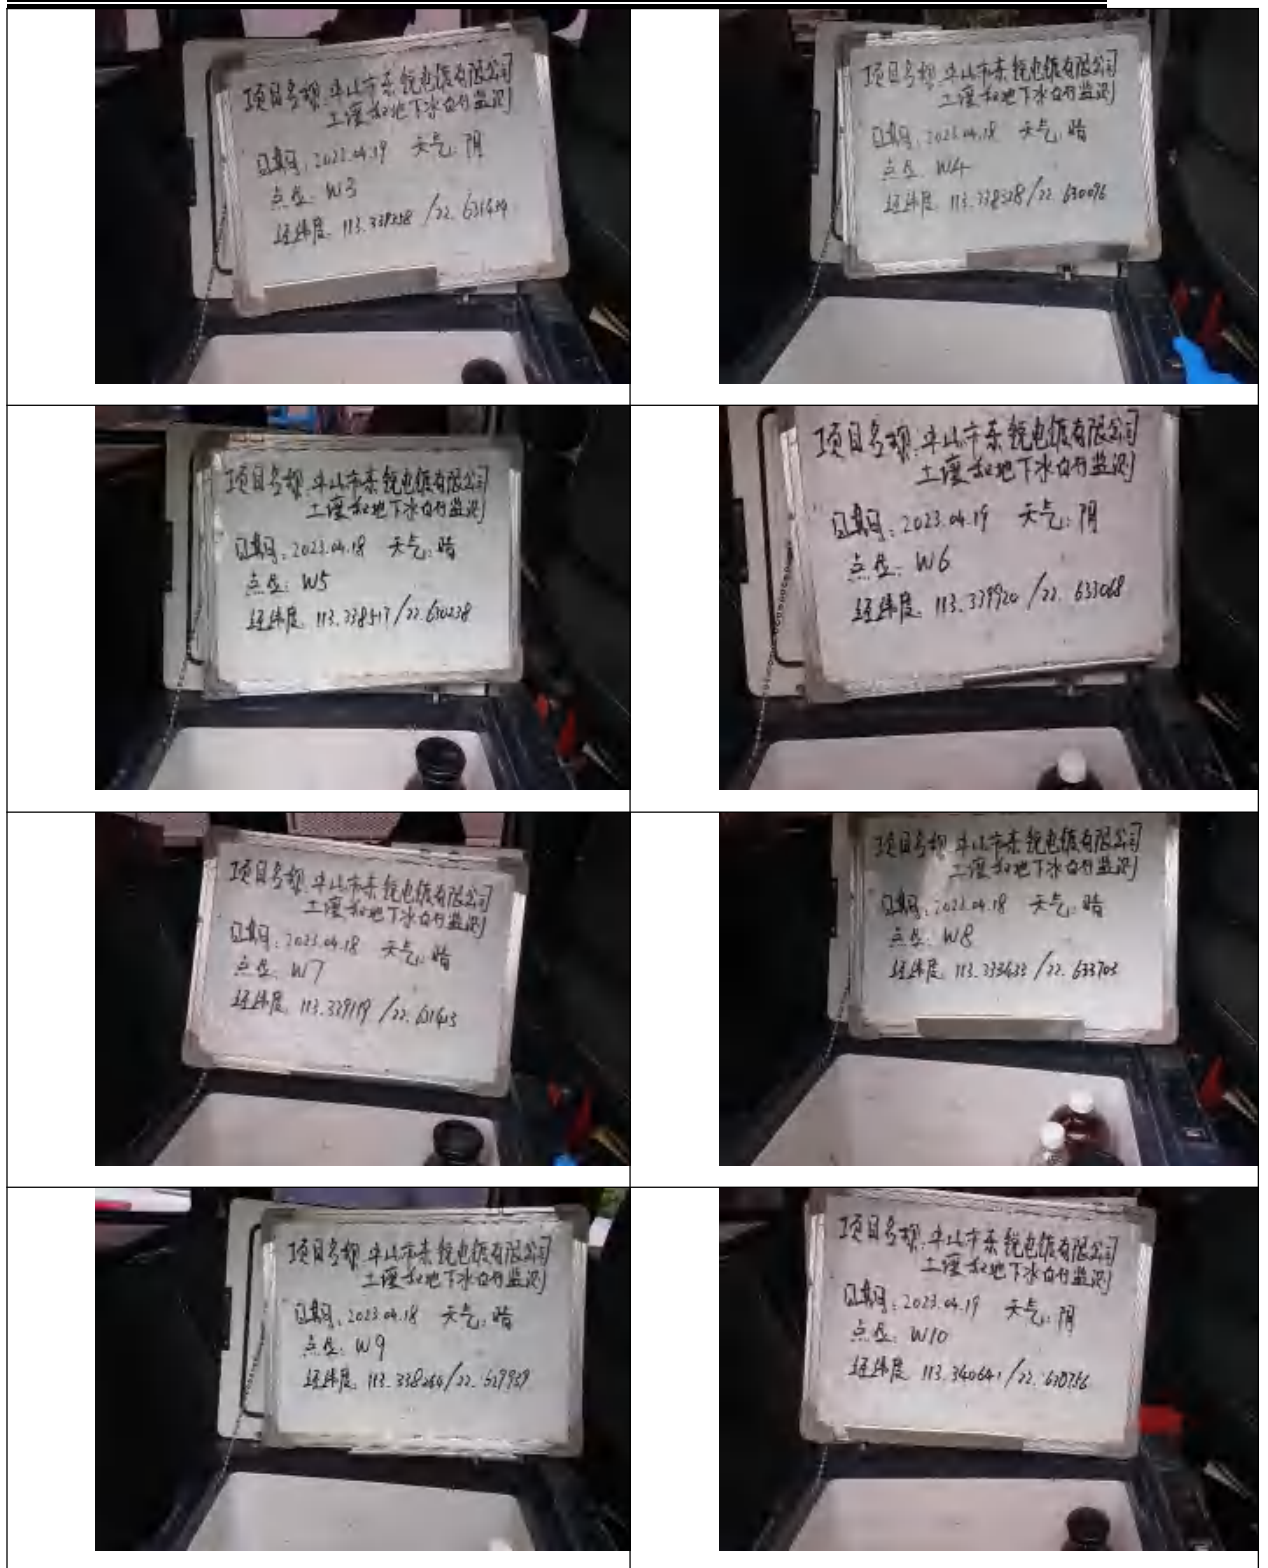 项目名称:中山市东锐电镀有限公司
土壤和地下水自行监测
日期:2023.04.19 天气:阴
点位:W3
经纬度:
项目名称:中山市东锐电镀有限公司
土壤和地下水自行监测
日期:2023.04.18 天气:晴
点位:W4
经纬度:113.338528/22.630096
项目名称:中山市东锐电镀有限公司
土壤和地下水自行监测
日期:2023.04.18 天气:晴
点位:W5
经纬度:113.338517/22.630238
项目名称:中山市东锐电镀有限公司
土壤和地下水自行监测
日期:2023.04.19 天气:阴
点位:W6
经纬度:113.339920/22.633068
项目名称:中山市东锐电镀有限公司
土壤和地下水自行监测
日期:2023.04.18 天气:晴
点位:W7
经纬度:113.339119/22.631613
项目名称:中山市东锐电镀有限公司
土壤和地下水自行监测
日期:2023.04.18 天气:晴
点位:W8
经纬度:113.333633/22.633703
项目名称:中山市东锐电镀有限公司
土壤和地下水自行监测
日期:2023.04.18 天气:晴
点位:W9
经纬度:113.338264/22.629929
项目名称:中山市东锐电镀有限公司
土壤和地下水自行监测
日期:2023.04.19 天气:阴
点位:W10
经纬度:113.340641/22.630756